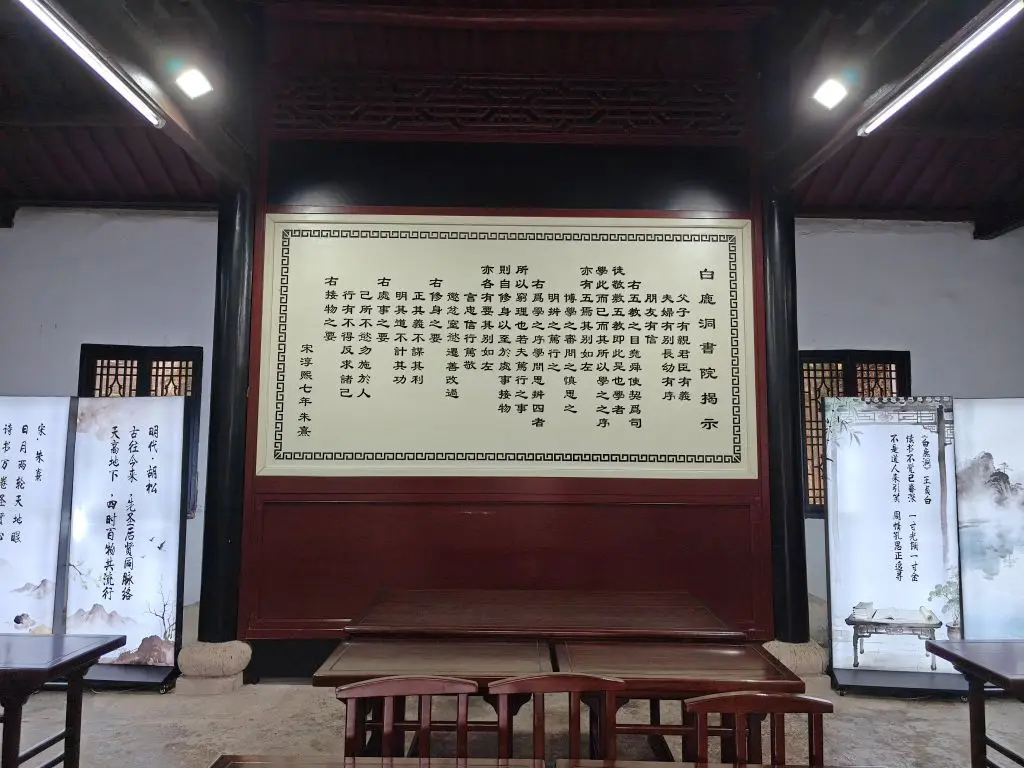 白鹿洞書院揭示
父子有親君臣有義
夫婦有別長幼有序
朋友有信
右五教之目堯舜使契爲司
徒敬敷五教即此是也學者
學此而已而其所以學之之序
亦有五焉其別如左
博學之審問之慎思之
明辨之篤行之
右爲學之序學問思辨四者
所以窮理也若夫篤行之事
則自修身以至於處事接物
亦各有要其別如左
言忠信行篤敬
懲忿窒慾遷善改過
右修身之要
正其義不謀其利
明其道不計其功
右處事之要
己所不慾勿施於人
行有不得反求諸己
右接物之要
宋淳熙七年朱熹
《白鹿洞》王贞白
读书不觉已春深 一寸光阴一寸金
不是道人来引笑 周情孔思正追寻
明代·胡松
古往今来,先圣后贤同脉络
天高地下,四时百物共流行
宋·朱熹
日月两轮天地眼
诗书万卷圣贤心